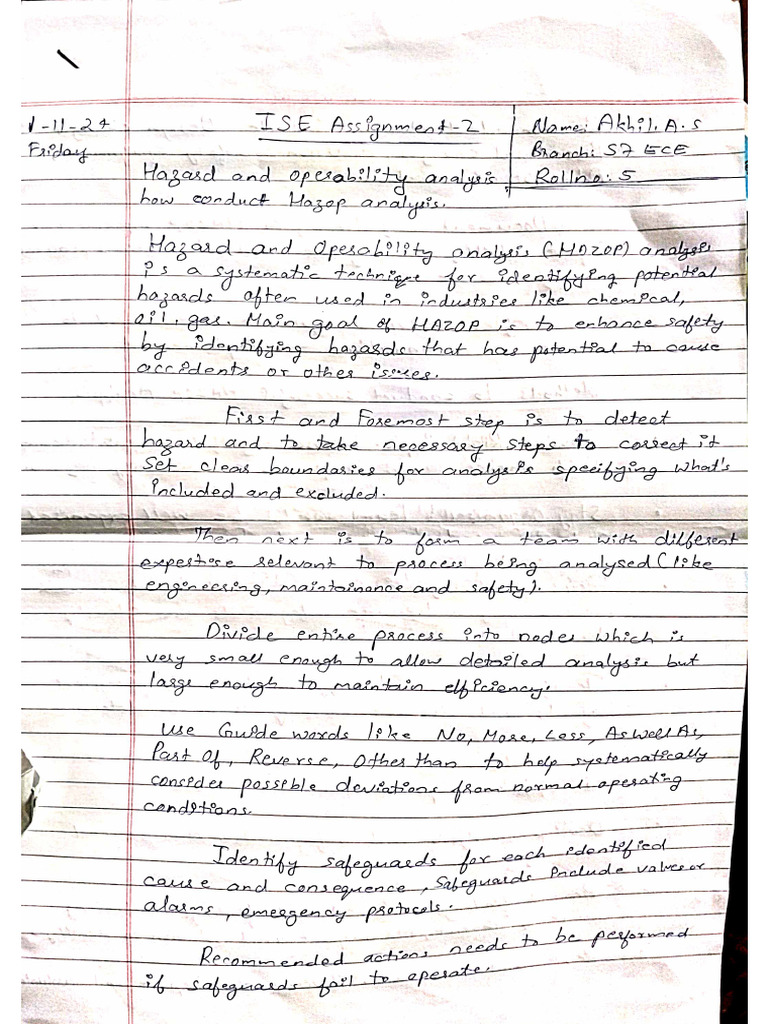 1-11-24
Friday
ISE Assignment-2
Name: Akhil. A. S
Branch: S7 ECE
Rollno: 5
Hazard and operability analysis,
how conduct Hazop analysis.
Hazard and Operability analysis (HAZOP) analysis
is a systematic technique for identifying potential
hazards often used in industries like chemical,
oil, gas. Main goal of HAZOP is to enhance safety
by identifying hazards that has potential to cause
accidents or other issues.
First and Foremost step is to detect
hazard and to take necessary steps to correct it
Set clear boundaries for analysis specifying what's
included and excluded.
Then next is to form a team with different
expertise relevant to process being analysed (like
engineering, maintainance and safety).
Divide entire process into nodes which is
very small enough to allow detailed analysis but
large enough to maintain efficiency.
Use Guide words like No, More, Less, As well As,
Part Of, Reverse, Other than to help systematically
consider possible deviations from normal operating
conditions.
Identify safeguards for each identified
cause and consequence, Safeguards Include valves or
alarms, emergency protocols.
Recommended actions needs to be performed
if safeguards fail to operate.